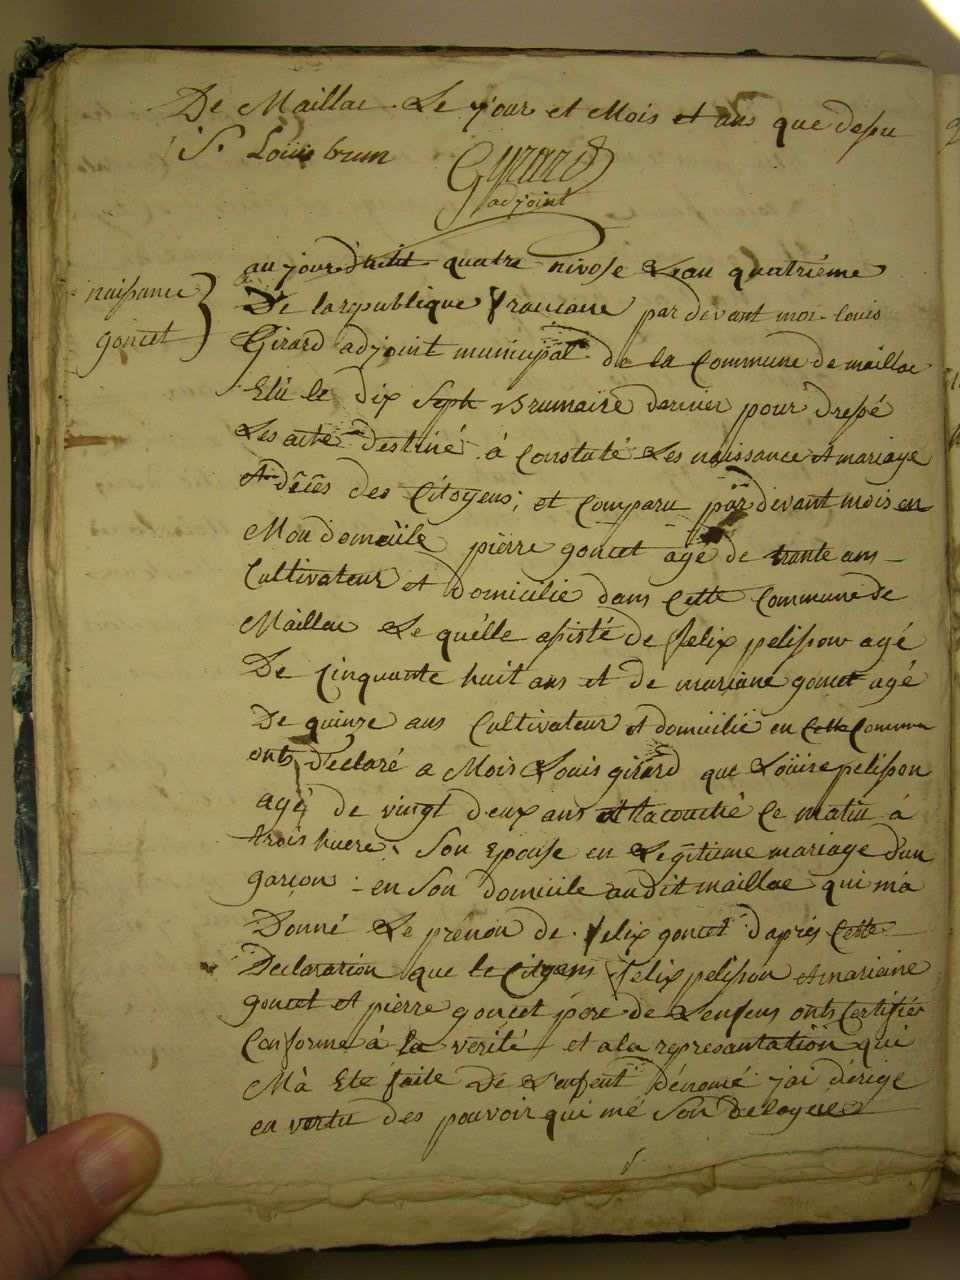 De Maillac. Le jour et Mois et ans que desu
S. Louis brun
Gyrard
adjoint
naissance
goncet
aujourd'huit quatre nivose Leau quatriéme
De larepublique francaise par devant moi louis
Girard adjoint municipal de la Commune de maillac
Elú le dix Sept Brumaire dernier pour dressé
Les acte destiné á Constaté Les naissance et mariage
et décés des Citoyens; et Comparu par devant mois en
Mon domciile pierre goncet agé de trante ans
Cultivateur et domicilié dans Cette Commune de
Maillac Le quélle assisté de felix pelisson agé
De Cinquante huit ans et de mariane goncet agé
De quinze ans Cultivateur et domiilié en Cette Commune
onts Déclaré a Mois Louis girard que Loüise pelisson
agé de vingt deux ans et tacouché Ce matin á
trois huere. Son Epouse en Legitieme mariage d'un
garçon en Son domiile audit maillac qui m'a
Donné Le prénon de felix goncet d'aprés Cette
Declararion que le Citoyens felix pelisson et mariaine
goncet et pierre goncet pére de L'enfens onts Certifiér
Conforme á la verité et a la represantation qui
M'à Eté faite De L'enfent dénomé j'ai dérigé
en vertu des pouvoir qui mé Son Delogues